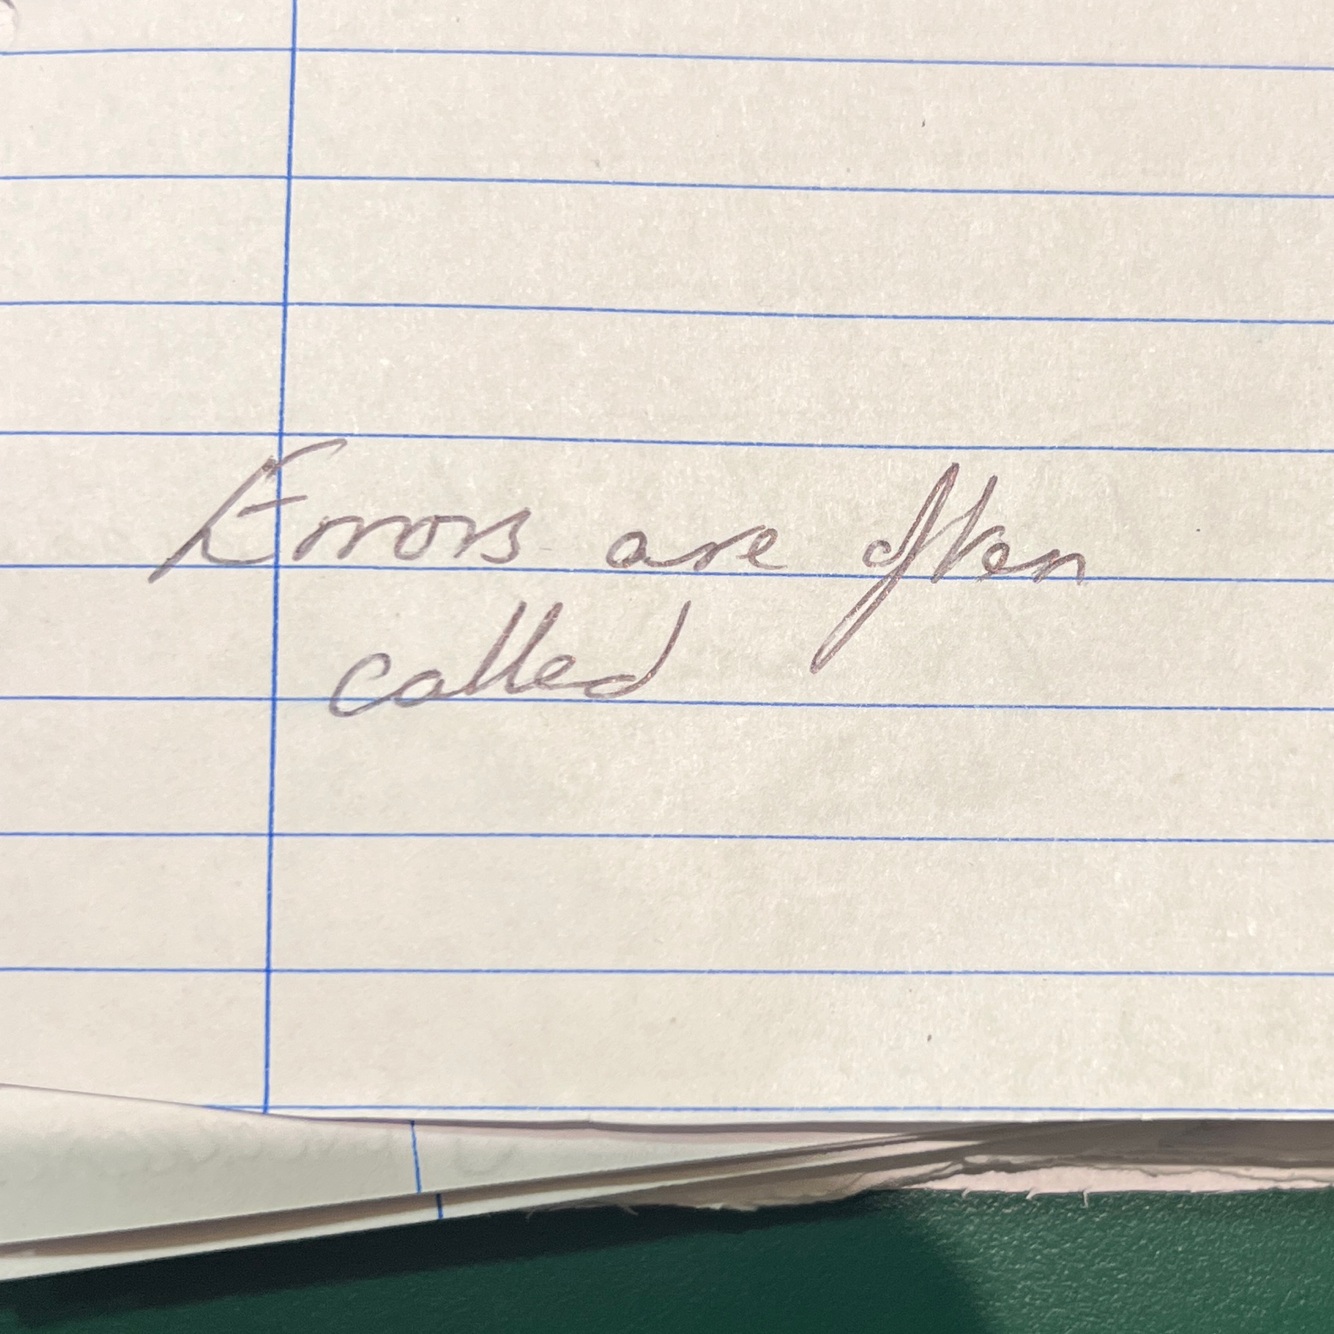 Errors are often
called